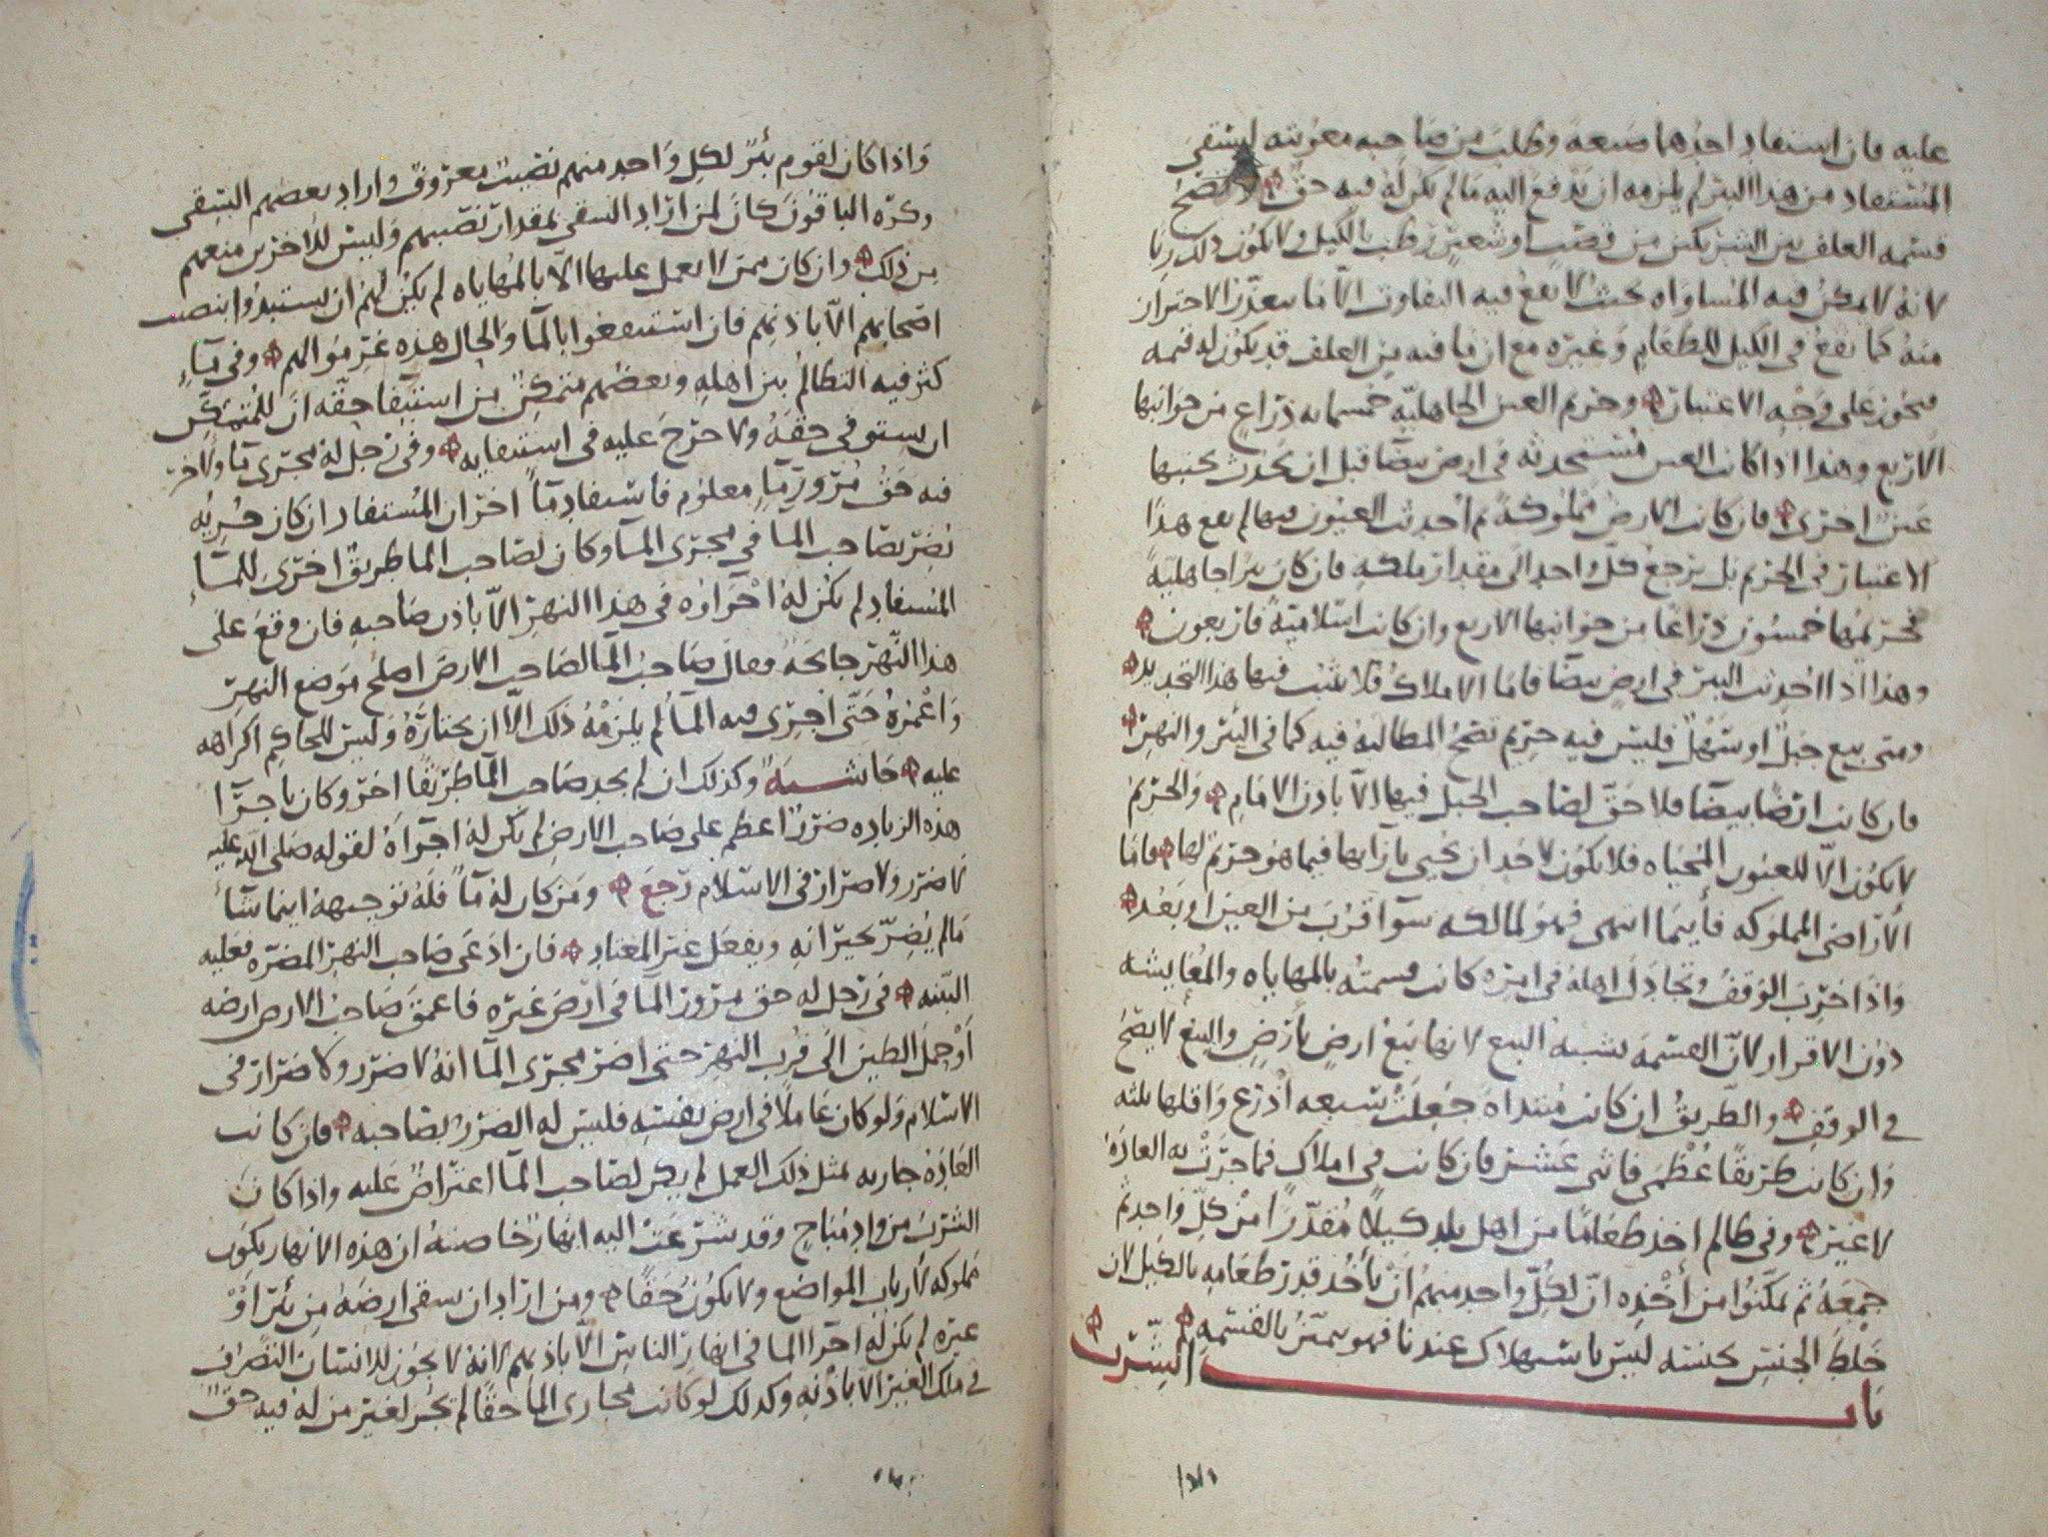 عليه فان استفاد احدهما ضيعه وطلب من صاحبه معونته ليسقي
المستفاد من هذا البئر لم يلزمه ان يدفع اليه ما لم يكن له فيه حق ولا تصح
قسمه العلف بين الشريكين من قصب او شعير رطب بالكيل ولا يكون ذلك ربا
لانه لا يمكن فيه المساواه بحيث لا يقع فيه التفاوت الا ما يتعذر الاحتراز
منه كما يقع في الكيل للطعام وغيره مع ان ما فيه من العلف قد يكون له قيمه
فيجوز على وجه الاعتبار وحريم العين الجاهليه خمسمايه ذراع من جوانبها
الاربع وهذا اذا كانت العين مستحدثه في ارض بيضا قبل ان يحدث بجنبها
عين اخرى فان كانت الارض مملوكة ثم احدثت العيون فيها لم يقع هذا
الاعتبار في الحريم بل يرجع كل واحد الى مقدار ملكه فان كان بيرا جاهلية
فحريمها خمسون ذراعا من جوانبها الاربع وان كانت اسلامية فاربعون
وهذا اذا احدثت البير في ارض بيضا فاما الاملاك فلا يثبت فيها هذا التحديد
ومتى بيع جبل او سهل فليس فيه حريم تصح المطالبة فيه كما في البئر والنهر
فان كانت ارضا بيضا فلا حق لصاحب الجبل فيها الا باذن الامام والحريم
لا يكون الا للعيون المحياه فلا يكون لاحد ان يحيي بازايها فيما هو حريم لها فاما
الاراضي المملوكه فأينما انتهى فهو لمالكه سوآ قرب من العين او بعد
واذا خرب الوقف وتجادل اهله في امره كانت قسمته بالمهاياه والمعايشه
دون الاقرار لان القسمه يشبه البيع لانها بيع ارض بارض والبيع لا يصح
في الوقف والطريق ان كانت مبتداه جعلت سبعه اذرع واقلها ثلثه
وان كانت طريقا عظمى فاثنى عشر فان كانت في املاك فما جرت به العادة
لا غير وفي ظالم اخذ طعاما من اهل بلد كيلا مقدرا من كل واحد ثم
جمعه ثم تمكنوا من أخذه ان لكل واحد منهم ان يأخذ قدر طعامه بالكيل لان
خلط الجنس بجنسه ليس باستهلاك عندنا فهو يميز بالقسمه
باب الشرب
واذا كان لقوم بئر لكل واحد منهم نصيب معروف واراد بعضهم السقي
وكره الباقون كان لمن اراد السقي بمقدار نصيبهم وليس للاخرين منعهم
من ذلك وان كان ممن لا يعمل عليها الا بالمهاياه لم يكن لهم ان يستبدوا بنصيب
اصحابهم الا باذنهم فان استنفعوا بالمآ والحال هذه غرموا لهم وفي مآء
كثر فيه التظالم بين اهله وبعضهم متمكن من استيفا حقه ان للمتمكن
ان يستوفي حقه ولا حرج عليه في استيفايه وفي رجل له مجرى مآ ولاخر
فيه حق مرور مآء معلوم فاستفاد مآ اخر ان المستفاد ان كان جريه
يضر بصاحب الما في مجرى المآ وكان لصاحب الما طريق اخرى للمآء
المستفاد لم يكن له اجراؤه في هذا النهر الا باذن صاحبه فان وقع على
هذا النهر جايحة فقال صاحب المآ لصاحب الارض اصلح موضع النهر
واعمره حتى اجري فيه المآ لم يلزمه ذلك الا ان يختاره وليس للحاكم اكراهه
عليه حاشية وكذلك ان لم يجد صاحب المآ طريقا اخر وكان باجرآ
هذه الزياده ضررا عظم على صاحب الارض لم يكن له اجرآه لقوله صلى الله عليه
لا ضرر ولا ضرار في الاسلام رجع ومن كان له مآ فله توجيهه اينما شآء
ما لم يضر بجيرانه ويفعل غير المعتاد فان ادعى صاحب النهر المضره فعليه
البينه في رجل له حق مرور المآ في ارض غيره فاعمق صاحب الارض ارضه
او حمل الطين الى قرب النهر حتى اضر مجرى المآ انه لا ضرر ولا ضرار في
الاسلام ولو كان عاملا في ارض نفسه فليس له الضرر بصاحبه فان كانت
العادة جاريه بمثل ذلك العمل لم يكن لصاحب المآ اعتراض عليه واذا كان
الشرب من واد مباح وقد شرعت اليه انهار خاصة ان هذه الانهار يكون
مملوكه لارباب المواضع ولا يكون حقا ومن اراد ان سقي ارضه من بئر او
غيره لم يكن له اجرا الما في انهار الناس الا باذنهم لانه لا يجوز للانسان التصرف
في ملك الغير الا باذنه وكذلك لو كانت مجاري الما حقا لم يجز لغير من له فيه حق